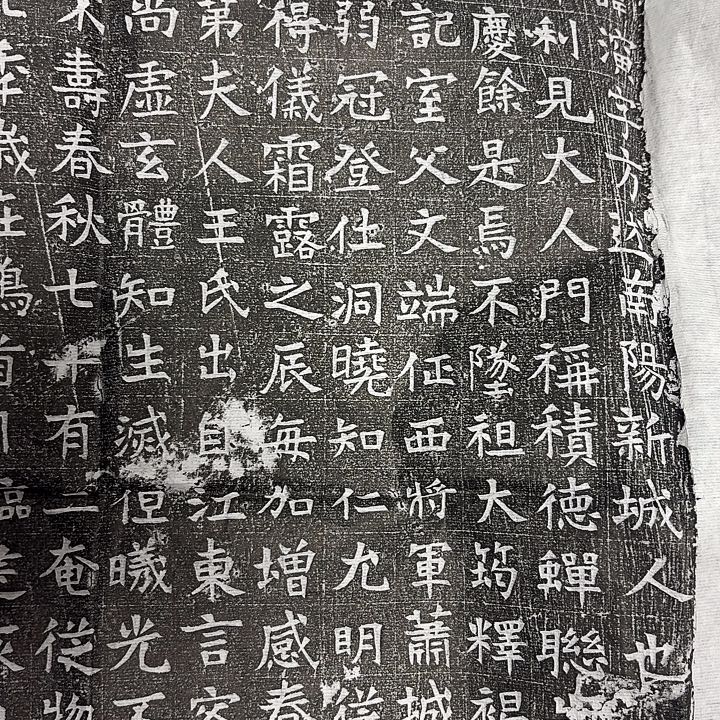 諱瀋字方逑南陽新城人也
利見大人門稱積德蟬聯
慶餘是焉不墜祖大筠釋褐
記室父文端征西將軍蕭城
弱冠登仕洞曉知仁允明從
得儀霜露之辰每加增感春
第夫人王氏出自江東言容
尚虛玄體知生滅但曦光不
壽春秋七十有二奄從物
歲在鶉首月臨